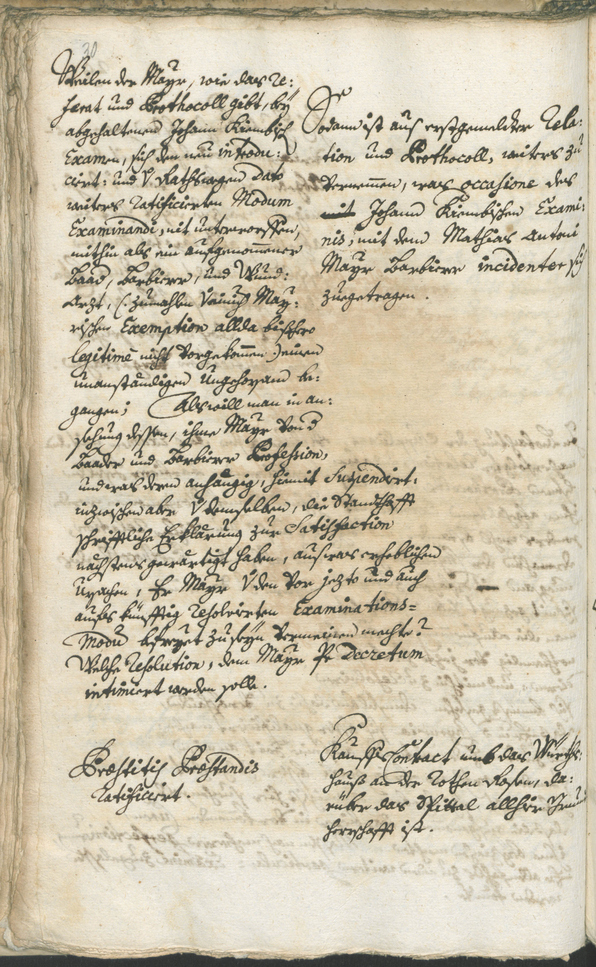 30
Weilen der Mayr, wie das Re:
ferat und Prothocoll gibt, bey
abgehaltenen Johann Kiembsch
Examen, sich den neu introdu:
ciert: und v Rathswegen dato
weiters ratificierten Modum
Examinandi, nit unterworffen,
mithin als ein aufgenommener
Baad, Barbierer, und Wund:
Arzt, (: zumahlen May:
rischen Exemption allda bishero
legitimè nicht vorgekommen :) einen
unanständigen Ungehorsamb be:
gangen; Als will man in an:
sehung dessen, ihme Mayr von d
Baader und Barbierer Profession,
und was deren anhängig, hiemit suspendirt,
inzwischen aber v demselben, die Standthaffte
schrifftliche Erklärung zur Satisfaction
nächstens gewärtigt haben, aus was erheblichen
Ursachen, Er Mayr v den vor jetzto und auch
aufs künfftig resolvirten Examinations-
Modo befreyet zu seyn vermeinen mechte?
Welche Resolution, dem Mayr per Decretum
intimiert werden solle.
Sodann ist aus erstgemelter Rela:
tion und Prothocoll, weiters zu
vernemmen, was occasione des
mit Johann Kiembschen Exami:
nis, mit dem Mathias Antoni
Mayr Barbierer incidenter sich
zuegetragen.
Præstitis Præstandis
ratificirt.
Kauffs Contract umb das Würths:
hauß an der Rothen Rosen, da:
rüber das Spittal allhier Grund
herrschafft ist.